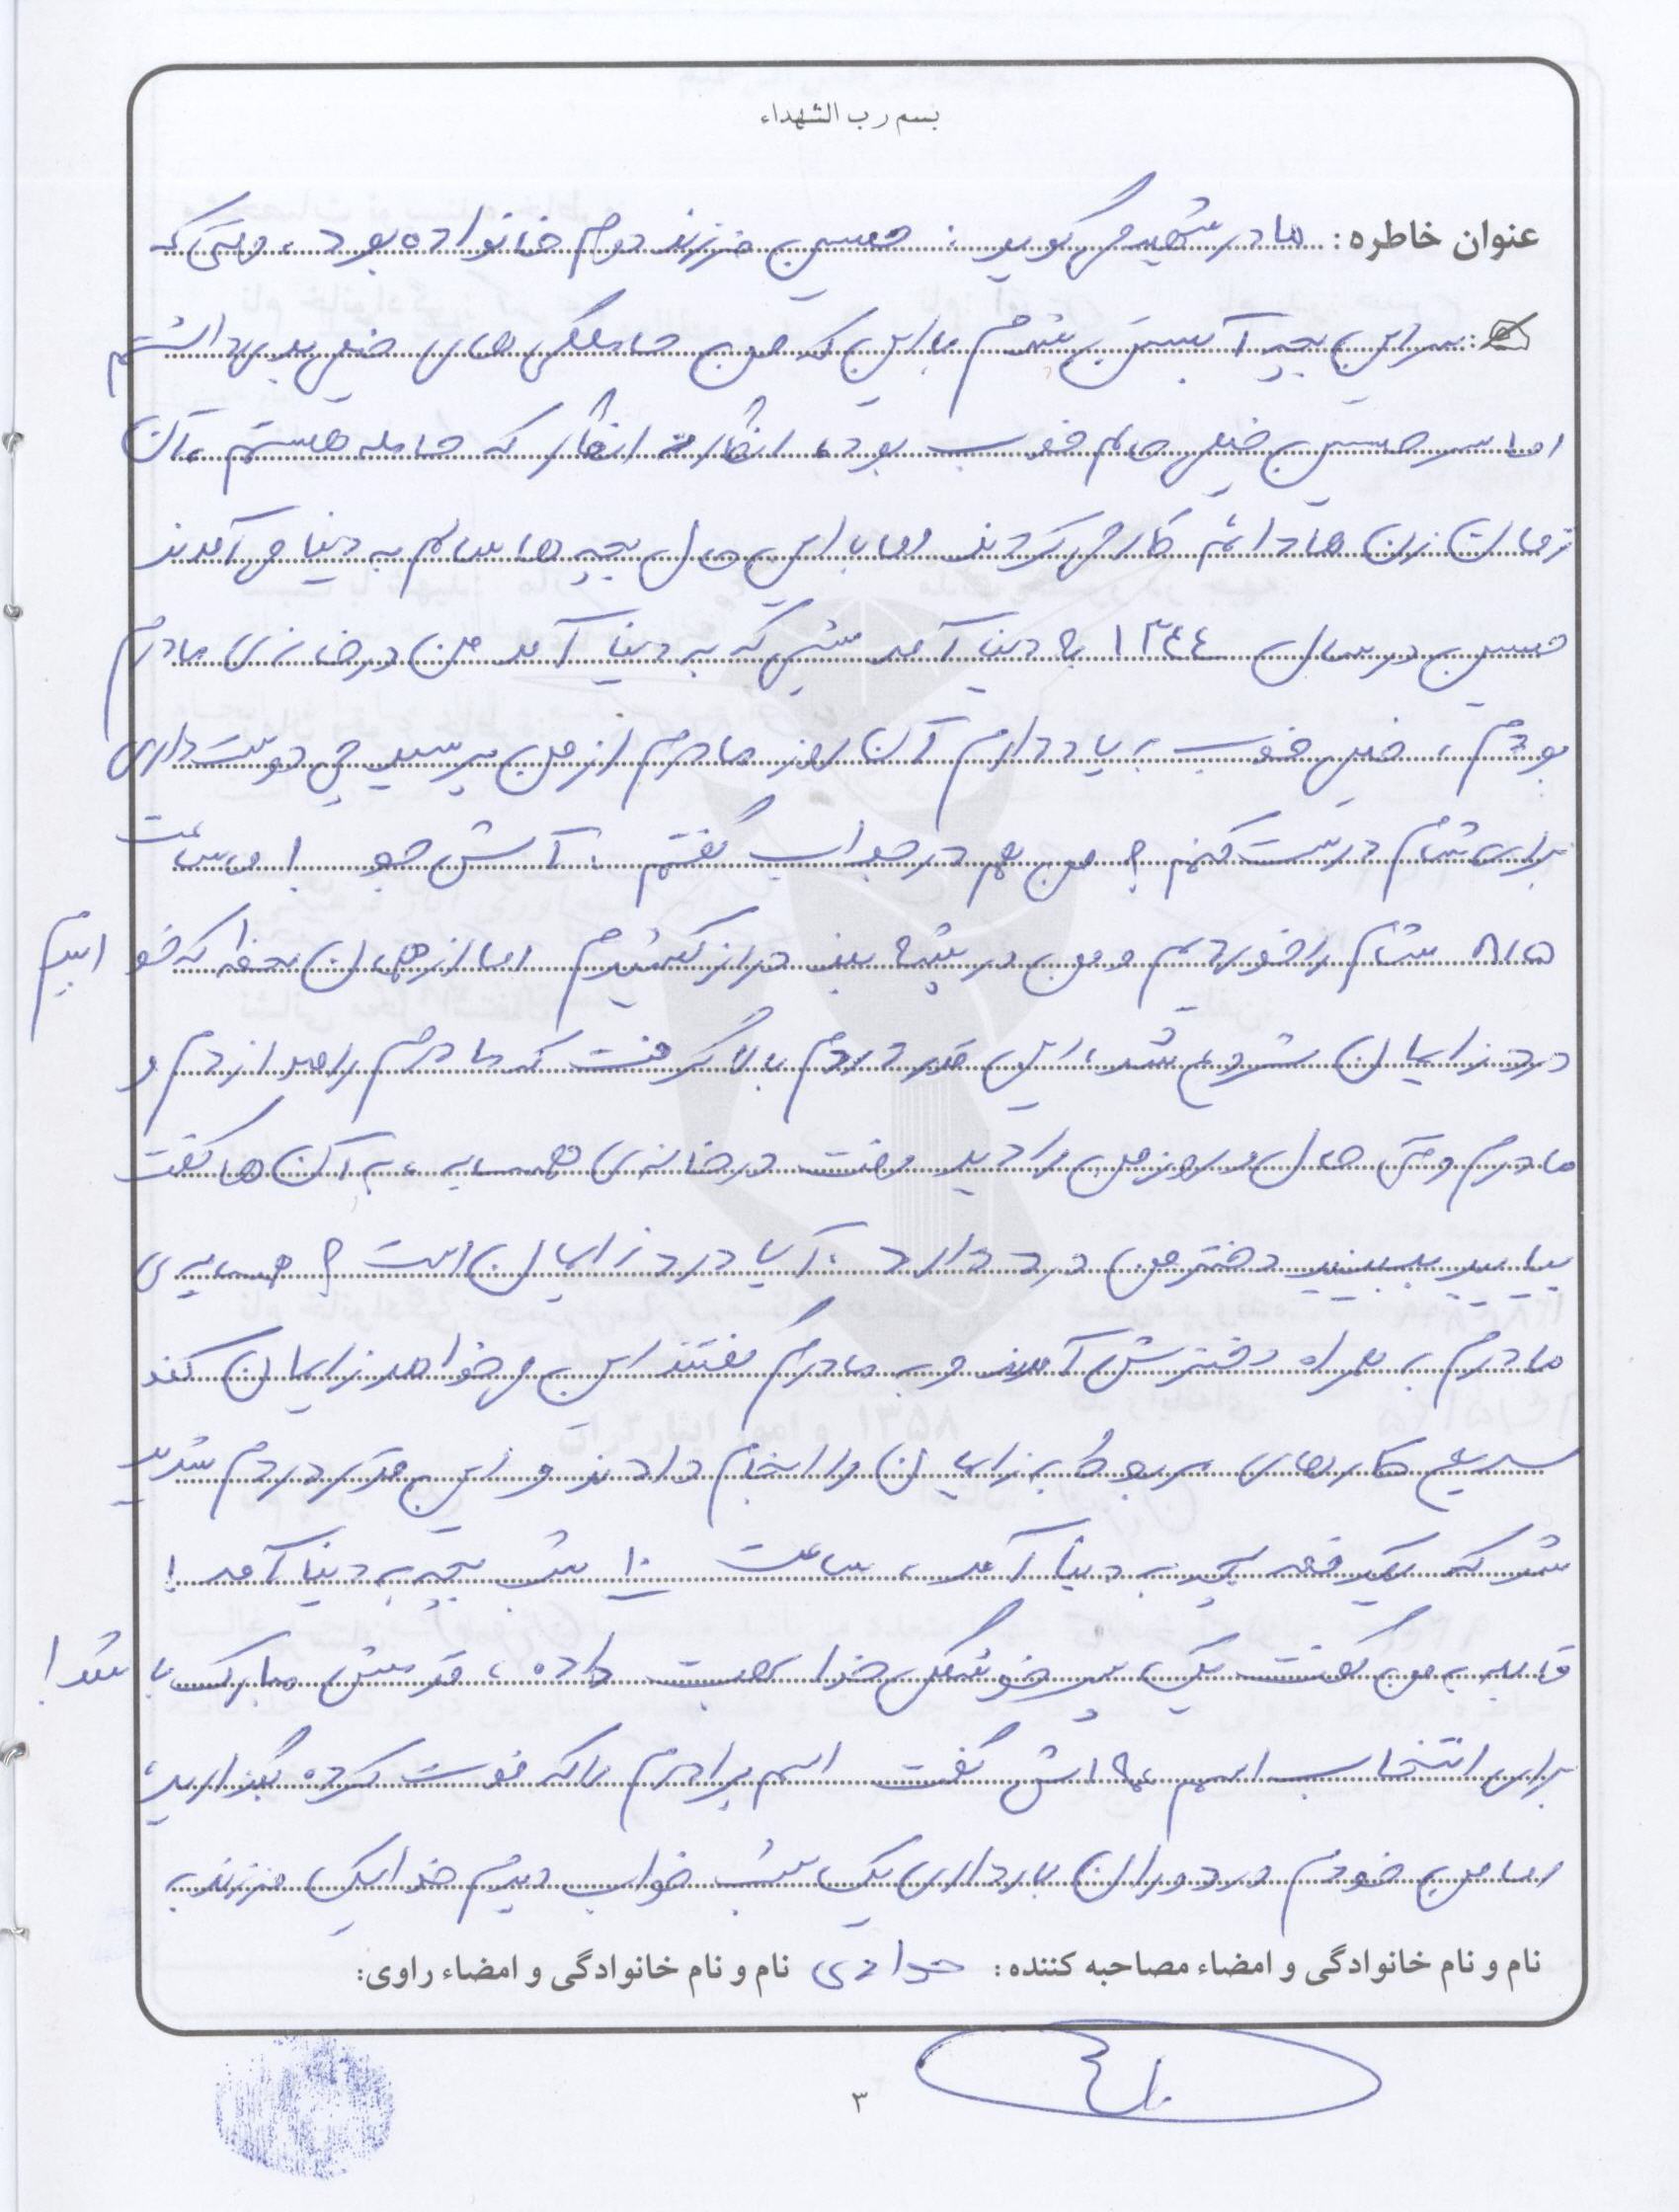 بسم رب الشهداء
عنوان خاطره: مادر شهید می گوید: حسین فرزند دوم خانواده بود، وقتی که
سر این بچه آبستن شدم با این که من حاملگی های خیلی بدی داشتم
اما سر حسین خیلی حالم خوب بود، انگار نه انگار که حامله هستم، آن
زمان زن ها دائم کار می کردند اما با این حال بچه ها سالم به دنیا می آمدند
حسین در سال ۱۳۴۴ به دنیا آمد شبی که به دنیا آمد من در خانه ی مادرم
بودم، خیلی خوب به یاد دارم آن روز مادرم از من پرسید چی دوست داری
برای شام درست کنم؟ من هم در جواب گفتم: آش جو! ساعت
۸/۵ شام را خوردیم و من در پشه بند دراز کشیدم اما از همان لحظه که خوابیدم
درد زایمان شروع شد، این قدر دردم بالا گرفت که مادرم را صدا زدم و
مادرم وقتی حال و روز من را دید رفت در خانه ی همسایه، به آن ها گفت
بیایید ببینید دختر من درد دارد، آیا درد زایمان است؟ همسایه ی
مادرم به همراه دخترش آمدند و به مادرم گفتند این می خواهد زایمان کند
سریع کارهای مربوط به زایمان را انجام دادند و این قدر دردم شدید
شد که یکدفعه بچه به دنیا آمد، ساعت ۱۰ شب بچه به دنیا آمد!
قابله به من گفت یک پسر خوشگل خدا بهت داده، قدمش مبارک باشد!
برای انتخاب اسم عمه اش گفت اسم برادرم را که فوت کرده بگذارید،
اما من خودم در دوران بارداری یک شب خواب دیدم خدا یک فرزند به
نام و نام خانوادگی و امضاء مصاحبه کننده: نام و نام خانوادگی و امضاء راوی:
۳